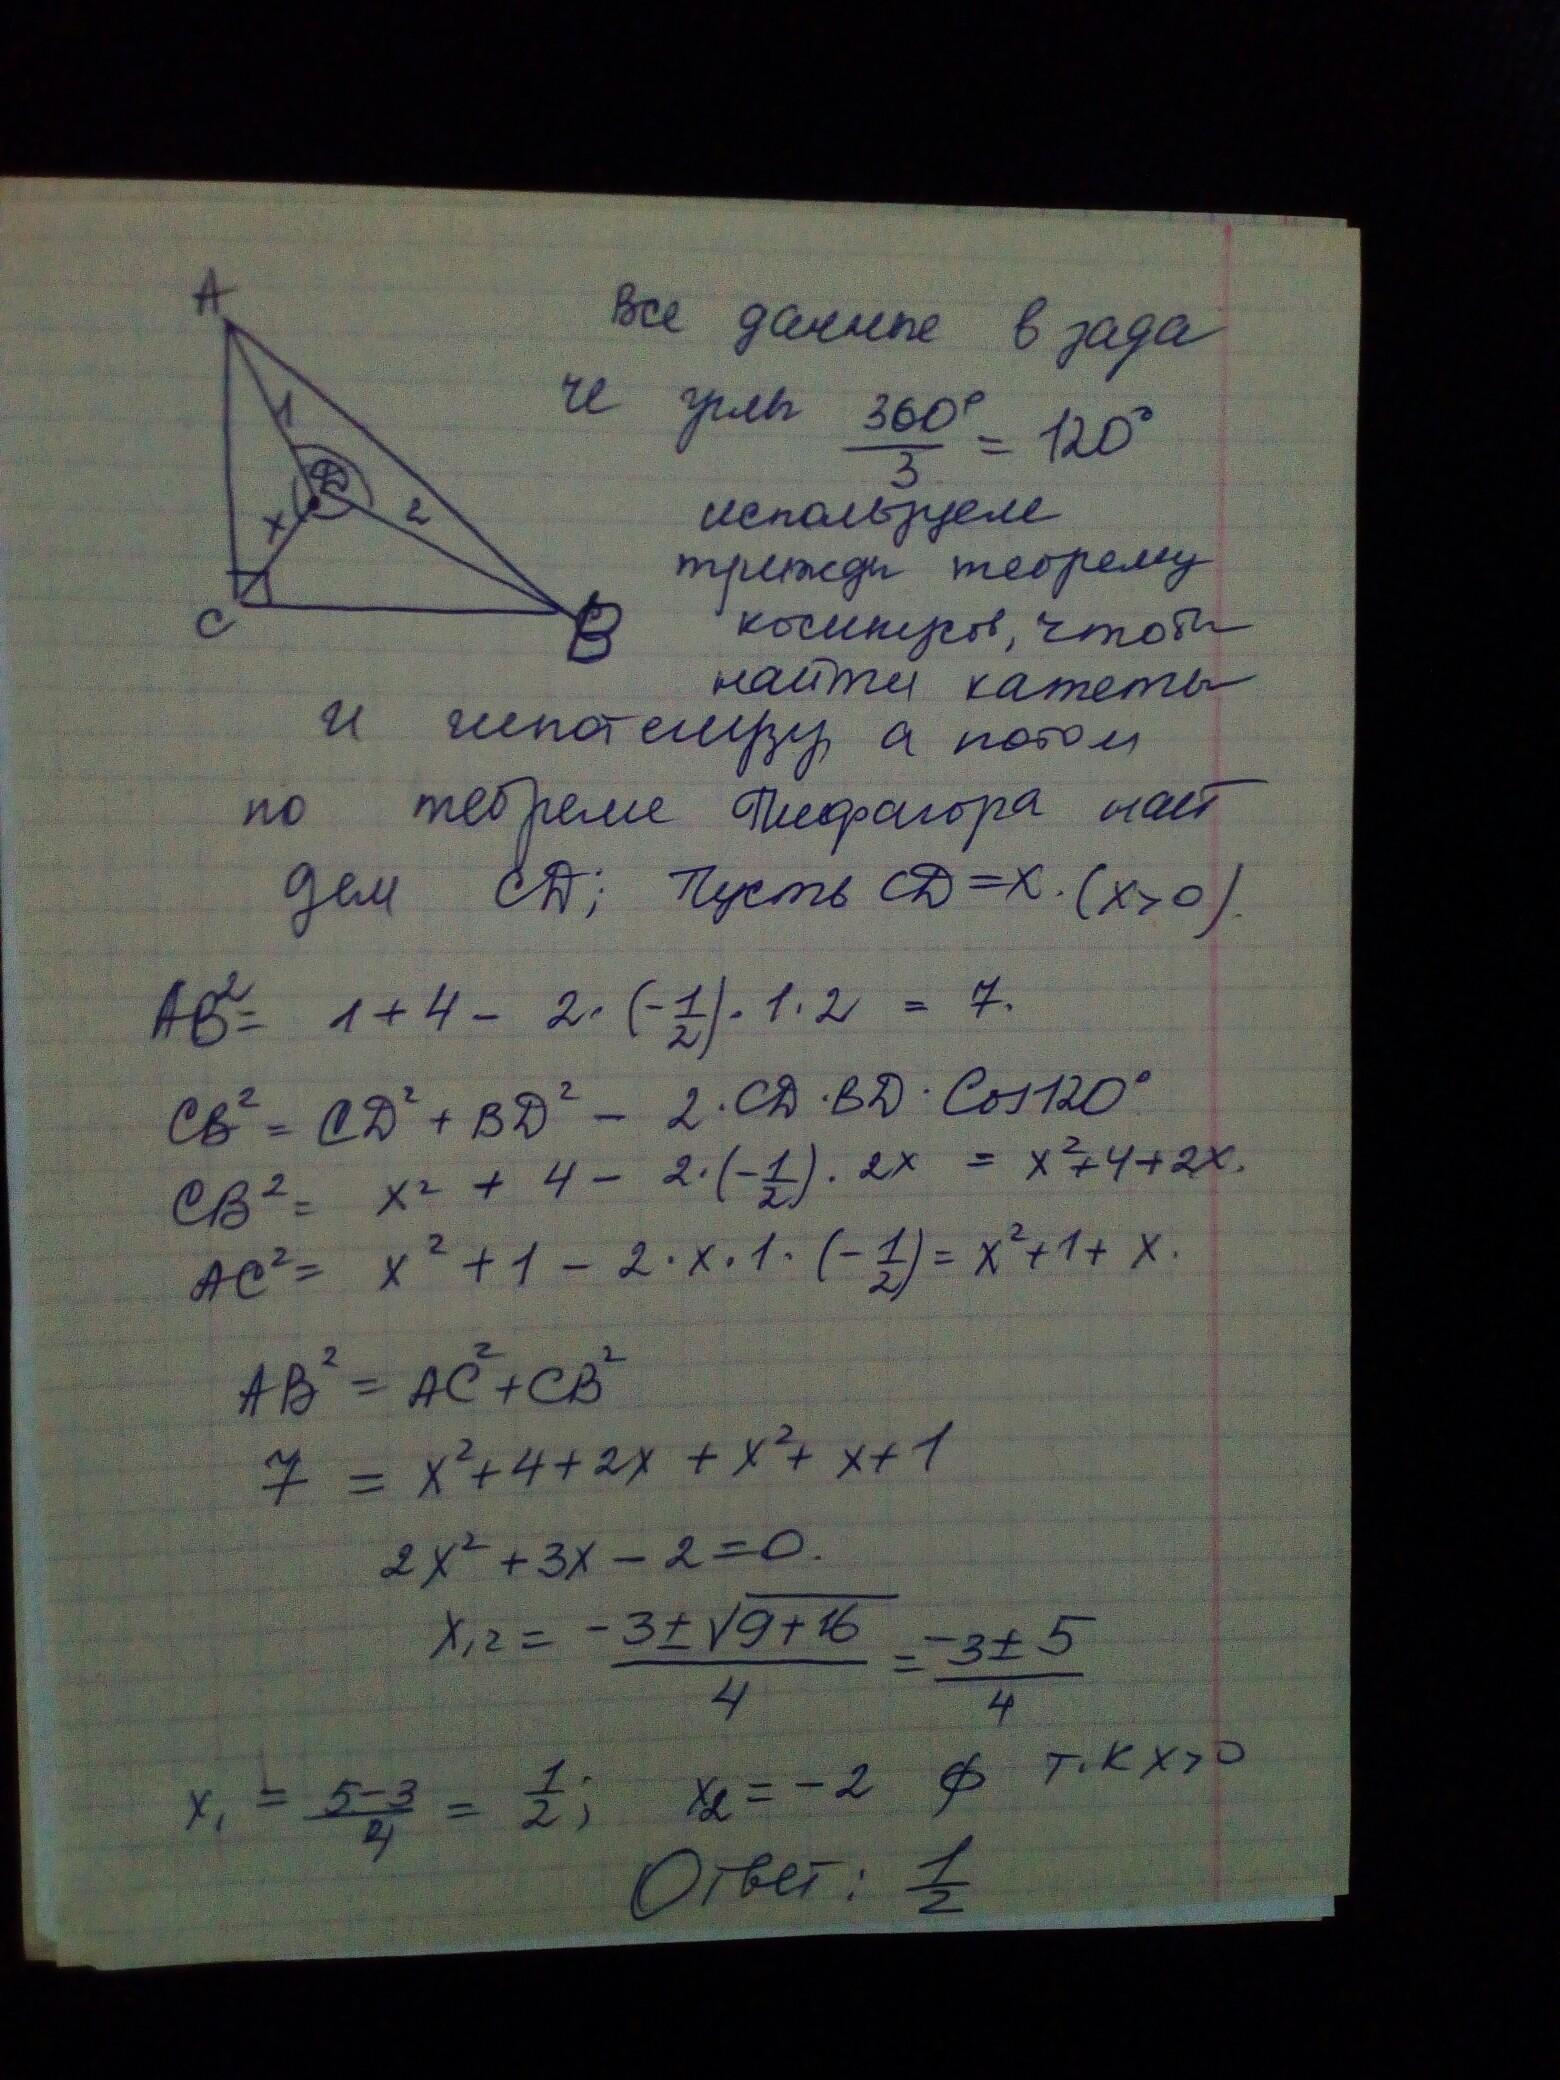 A
1
D
2
x
C
B
Все данные в зада
че углы 360°/3 = 120°
используем
трижды теорему
косинусов, чтобы
найти катеты
и гипотенузу, а потом
по теореме Пифагора най
дем CD; Пусть CD = x. (x>0).
AB² = 1 + 4 - 2·(-1/2)·1·2 = 7.
CB² = CD² + BD² - 2·CD·BD·Cos120°
CB² = x² + 4 - 2·(-1/2)·2x = x²+4+2x.
AC² = x² + 1 - 2·x·1·(-1/2) = x²+1+x.
AB² = AC² + CB²
7 = x²+4+2x + x²+ x+1
2x² + 3x - 2 = 0.
x₁,₂ = (-3±√(9+16))/4 = (-3±5)/4
x₁ = (5-3)/4 = 1/2; x₂ = -2 ∅ т.к x>0
Ответ: 1/2